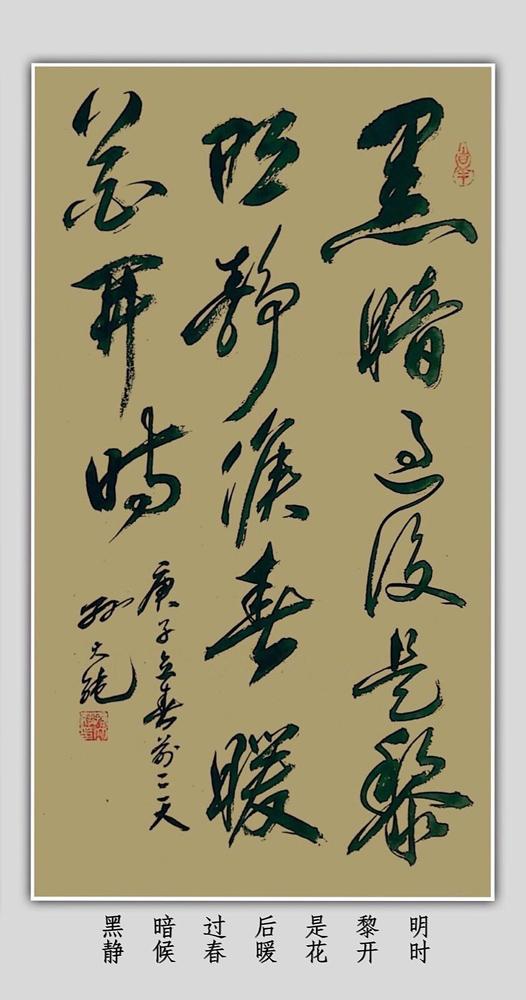 黑暗过後是黎
明静候春暖
花開時
庚子立春前天
黑暗过后是黎明
静候春暖花开时